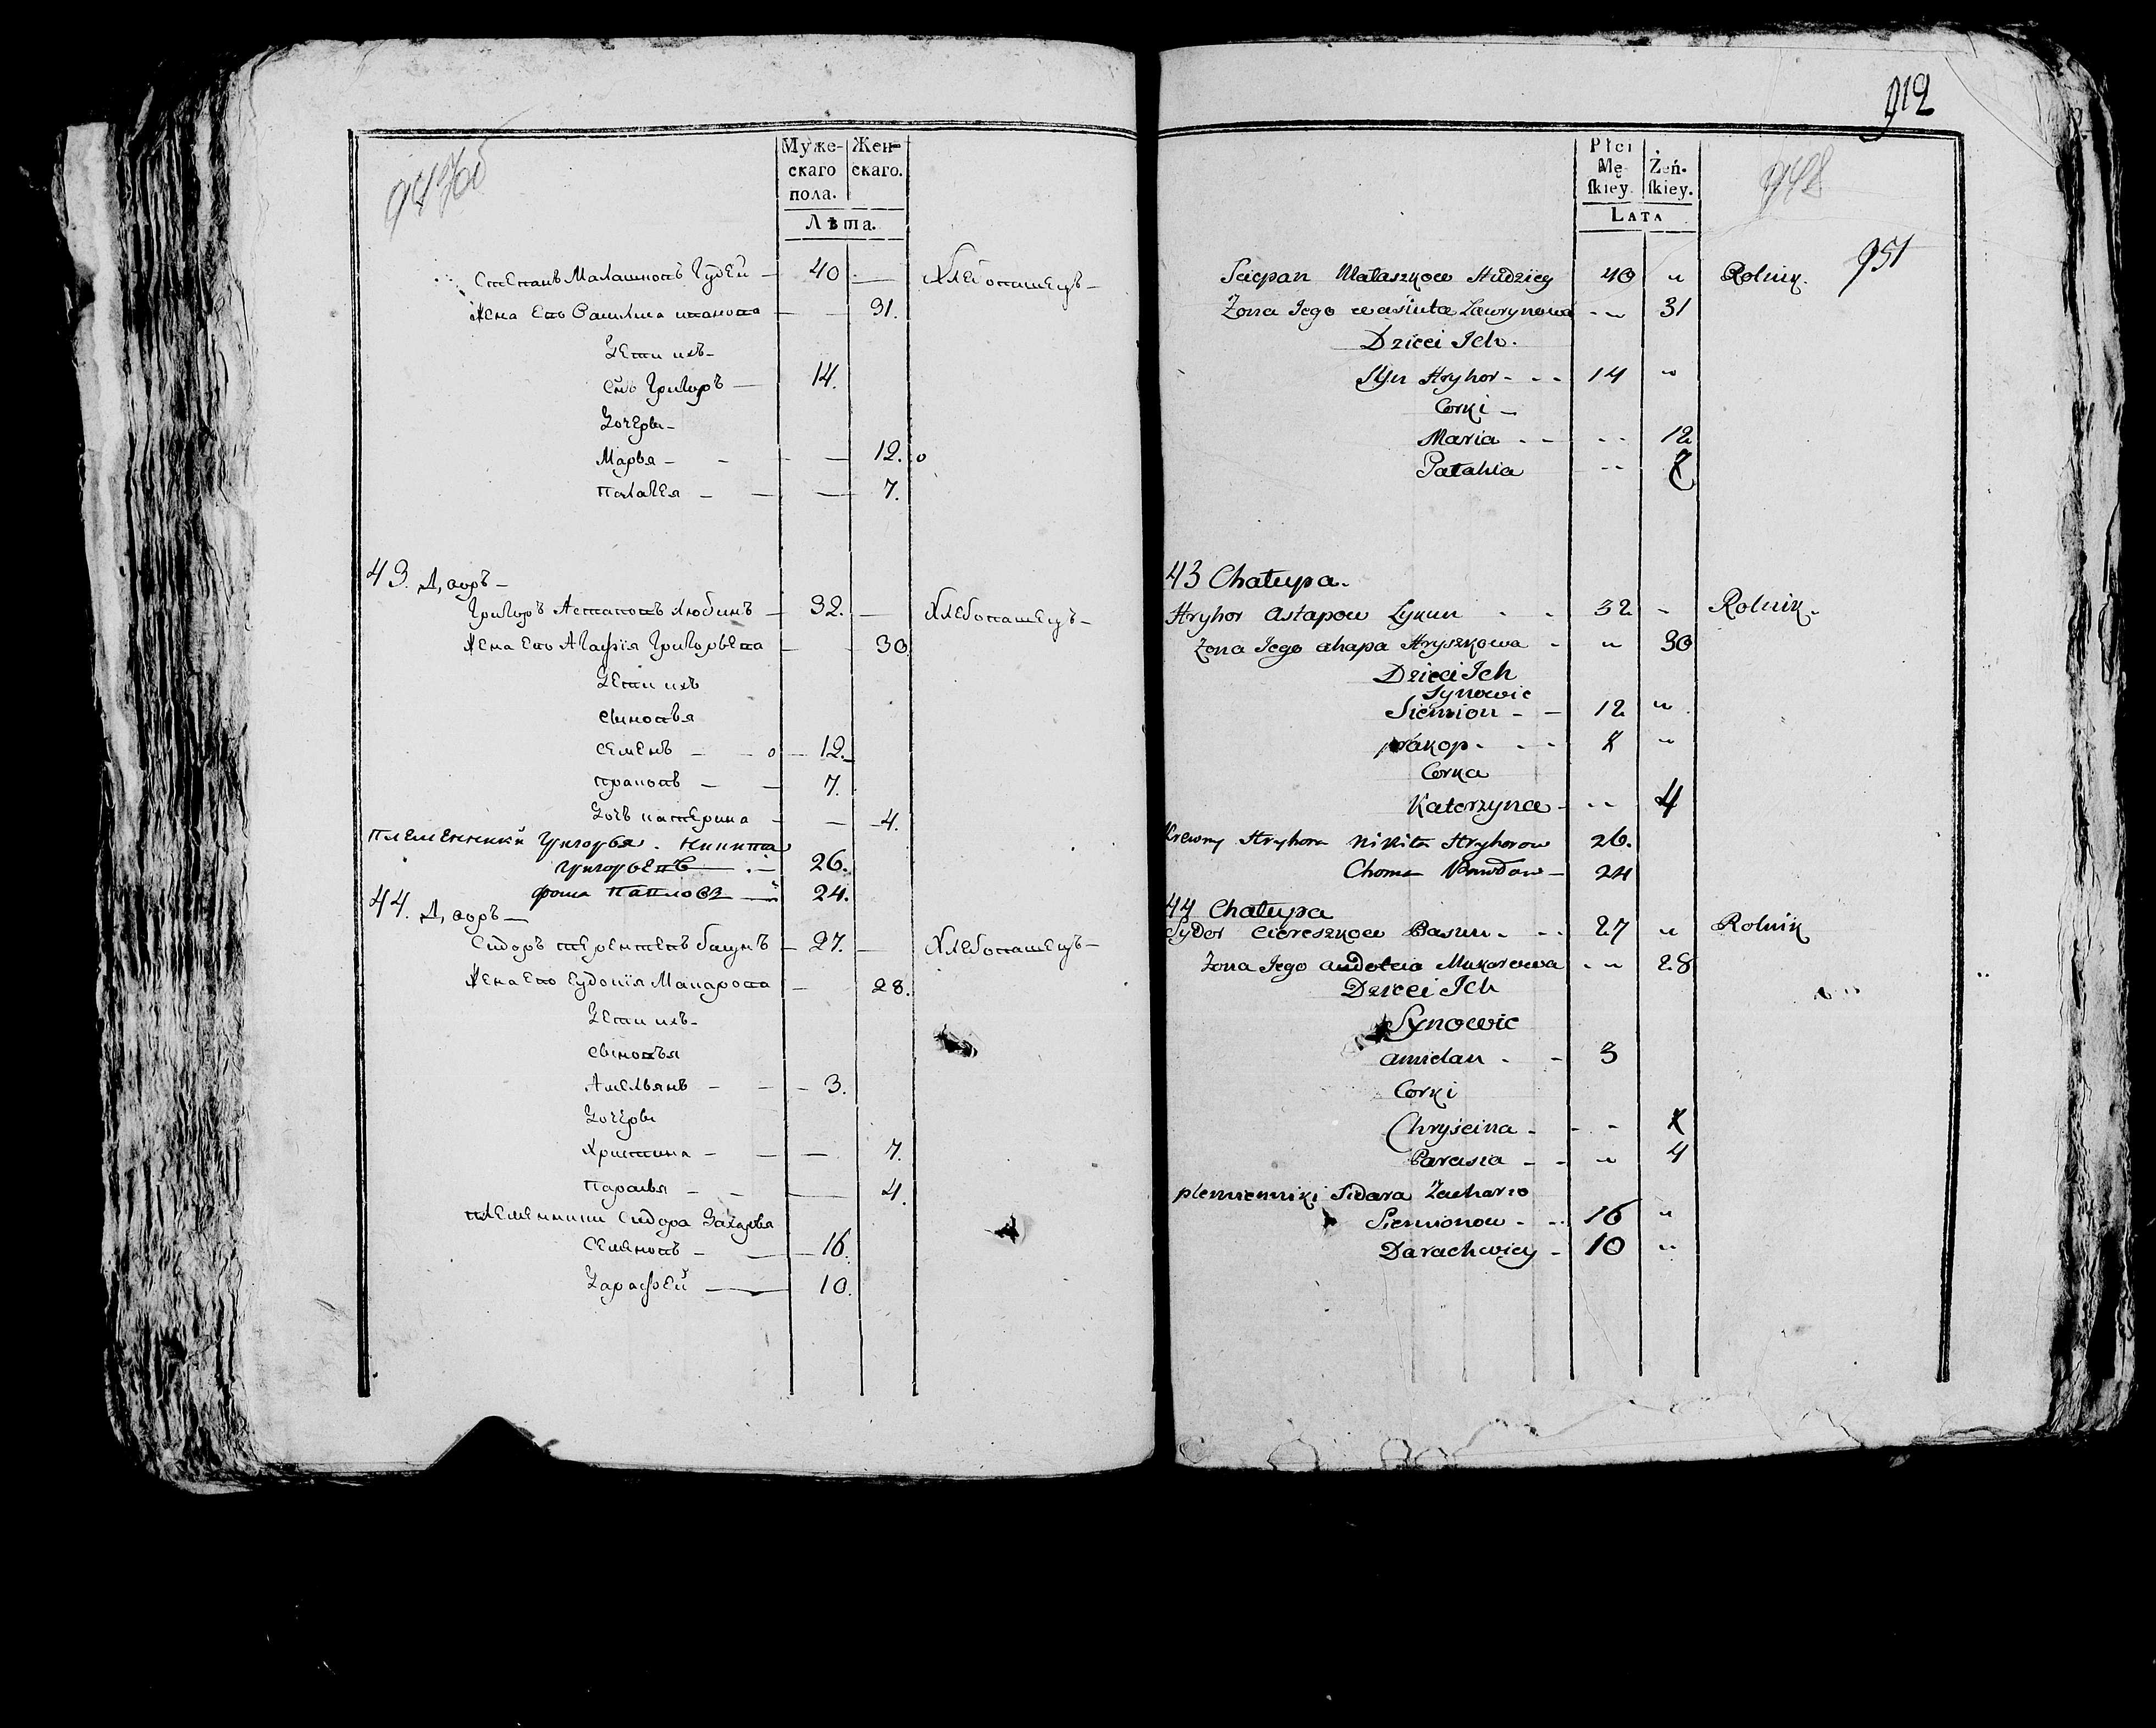 947об
Муже-
скаго
пола.
Жен-
скаго.
Лѣта.
Степанъ Малашковъ Гудей — 40 — Хлебопашецъ —
Жена Его — — 31.
Дети ихъ —
Снъ Григоръ — 14.
Дочери —
Марья — — — — 12.
Палагея — — — 7.
43. Дворъ —
Григоръ Астаповъ — 32. — Хлебопашецъ —
Жена Его Агафія Григорьева — 30
Дети ихъ
сыновья
Семенъ — — 12.
Прокопъ — — 7.
Дочь Катерина — — 4.
Племенники Григорья. Никита
Григорьевъ — 26.
Фома Павловъ — 24.
44. Дворъ —
Сидоръ Терентевъ Басунъ — 27. — Хлебопашецъ —
Жена Его Еудокія Макарова — 28.
Дети ихъ —
сыновья
Амельянъ — — — 3.
Дочери
Христина — — — 7.
Парасья — — — 4.
племенники Сидора Захарья
Семеновъ — — 16.
Дарафей — 10.
912
Płci
Mę-
ſkiey.
Żeń-
ſkiey.
LATA
948
951
Sciepan Małaszkow Hudziey 40 " Rolnik.
Żona Jego Wasiuta Ławrynowa - - 31
Dzieci Ich.
Syn Hryhor - - - 14 "
Corki —
Maria - - - - 12
Pałahia - - 7
43 Chałupa.
Hryhor Astapow - - 32 - Rolnik.
Żona Jego Ahapa Hryszkowa - " 30
Dzieci Ich
Synowie
Siemion - - 12 "
Prakop - - - 7 "
Corka
Katerzyna - - - 4
Krewny Hryhora Nikita Hryhorow 26.
Choma Pawłow — 24
44 Chałupa
Sydor Ciereszkow Basun - - - 27 " Rolnik
Żona Jego Audotcia Makarowa - " 28
Dzieci Ich
Synowie
Amielan - - 3
Corki
Chryścina - - - 7
Parasia - - " 4
plemienniki Sidara Zachario
Siemionow - - 16 "
Darachwiey - 10 "